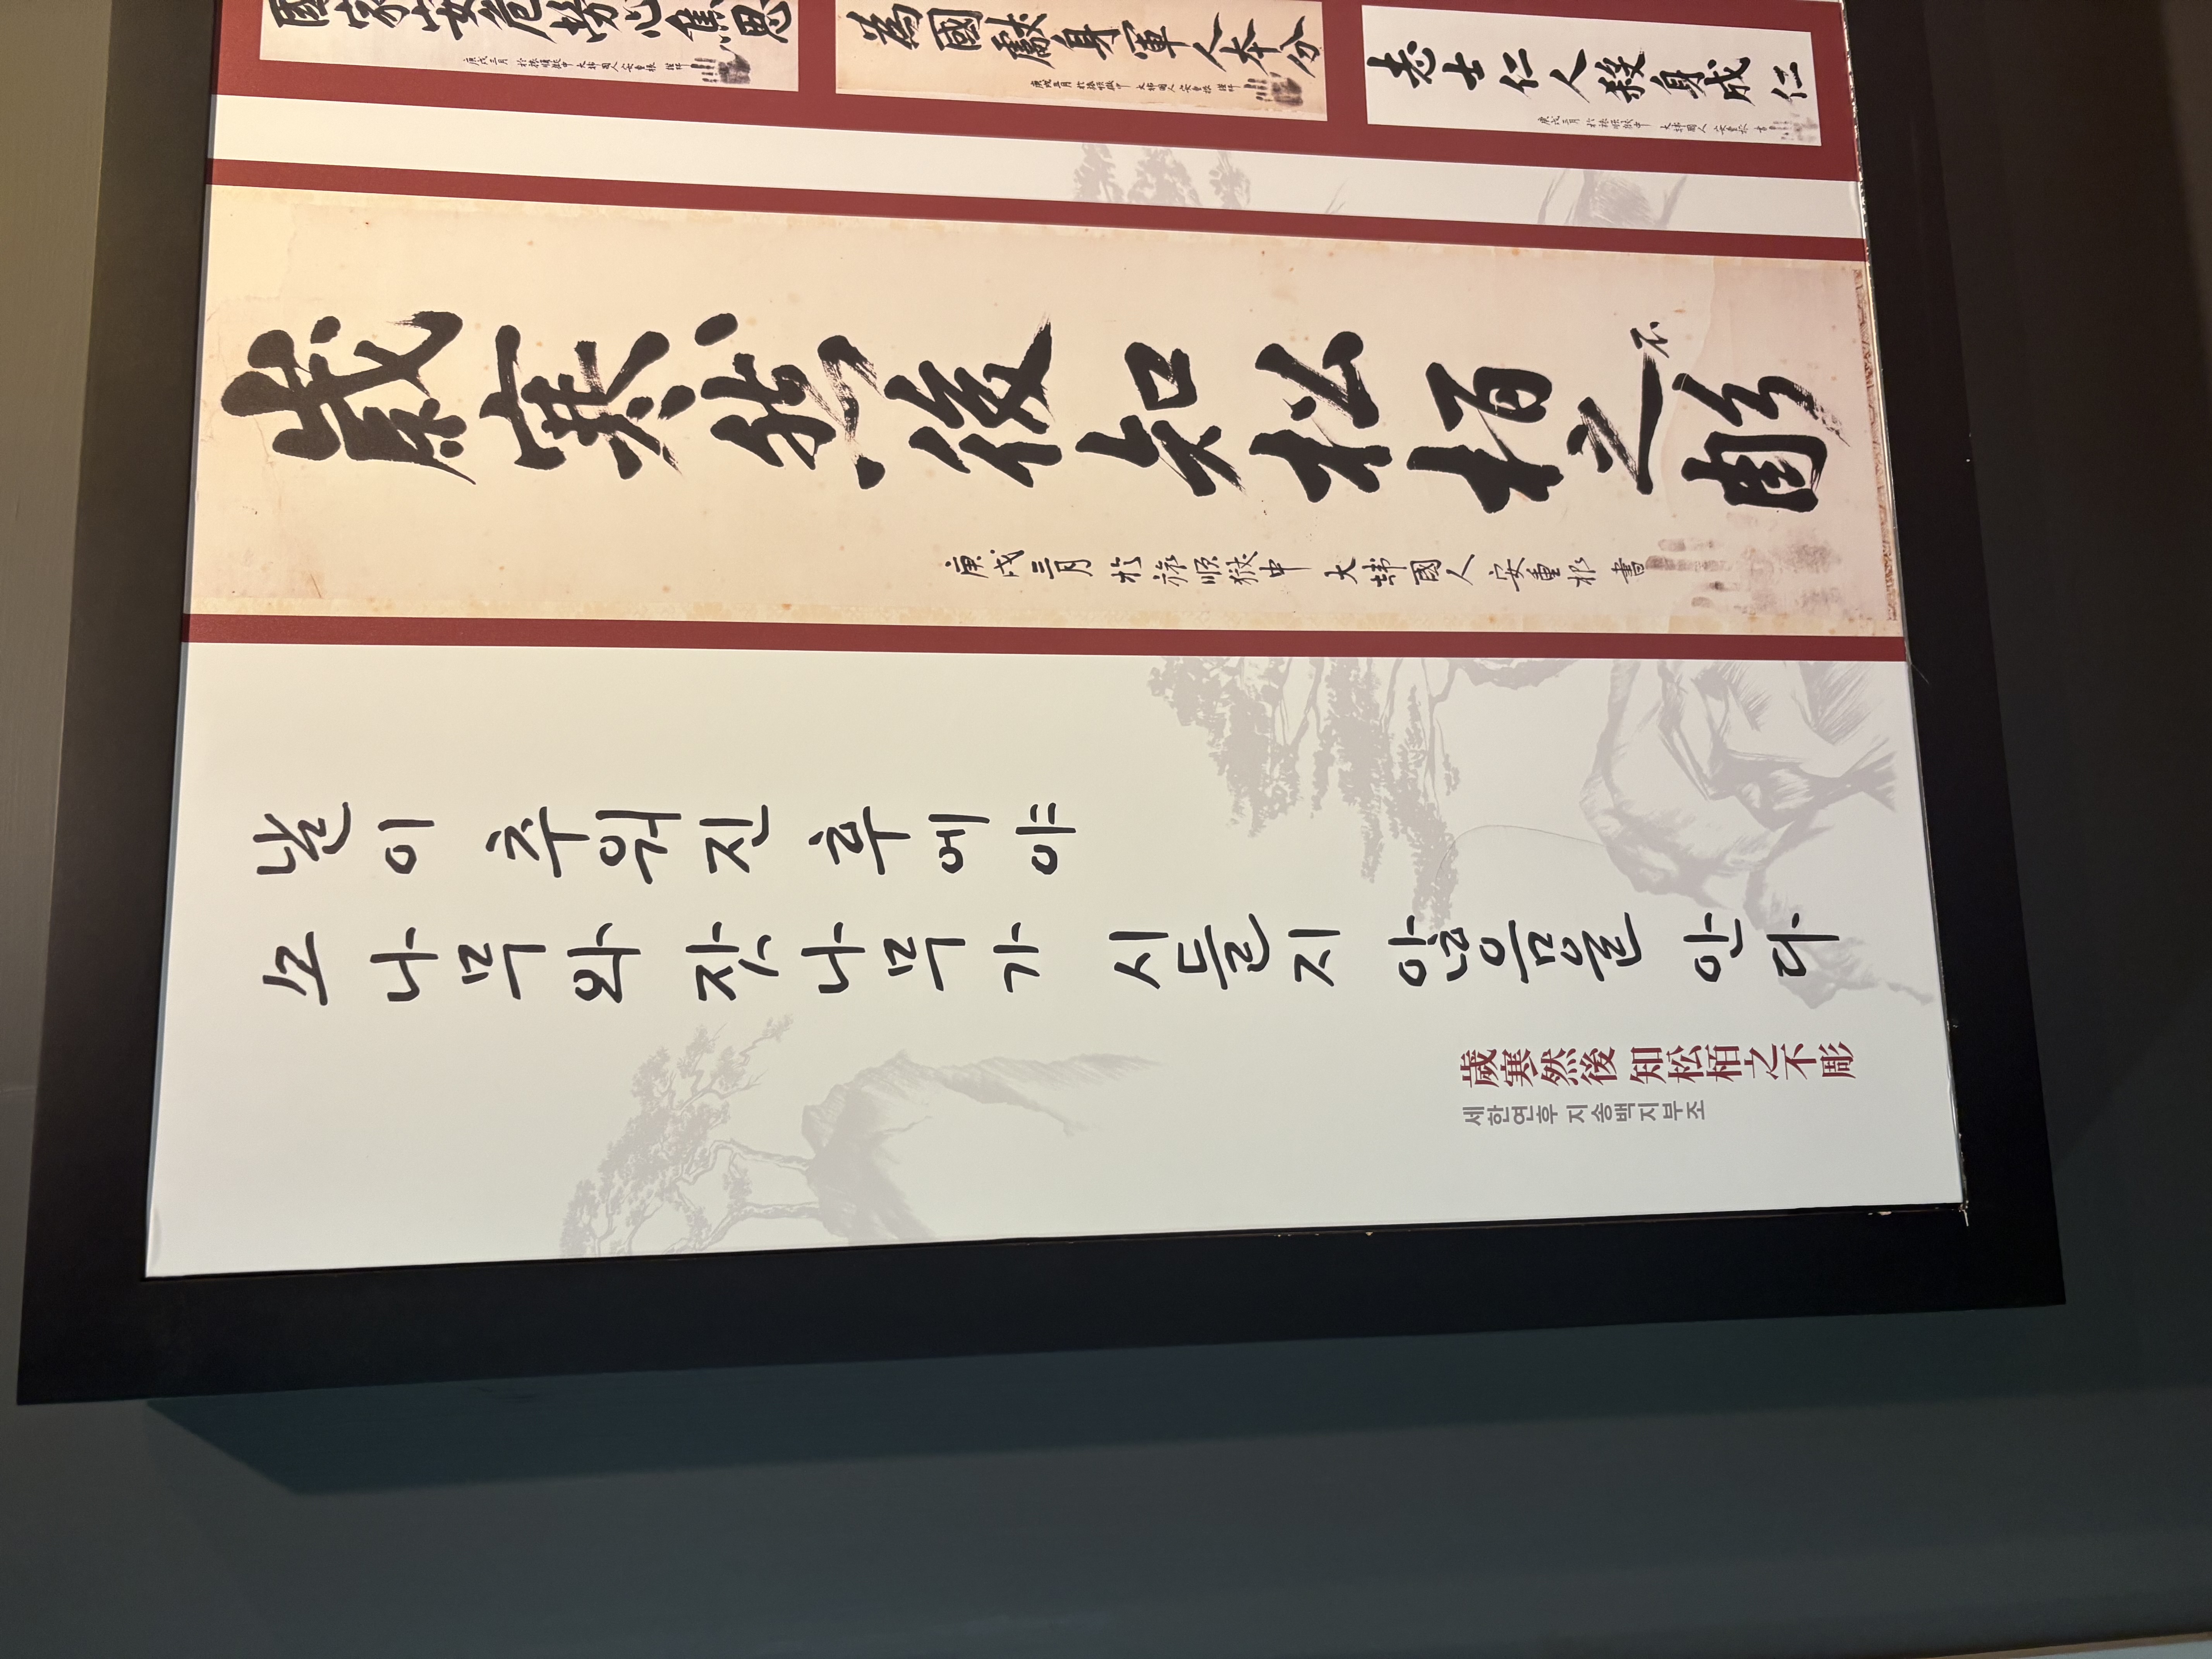 國家安危勞心焦思
庚戌三月 於旅順獄中 大韓國人 安重根 謹拜
爲國獻身軍人本分
庚戌三月 於旅順獄中 大韓國人 安重根 謹拜
志士仁人殺身成仁
庚戌三月 於旅順獄中 大韓國人 安重根 書
歲寒然後知松栢之不彫
庚戌三月 於旅順獄中 大韓國人 安重根 書
날이 추워진 후에야
소나무와 잣나무가 시들지 않음을 안다
歲寒然後 知松栢之不彫
세한연후 지송백지부조